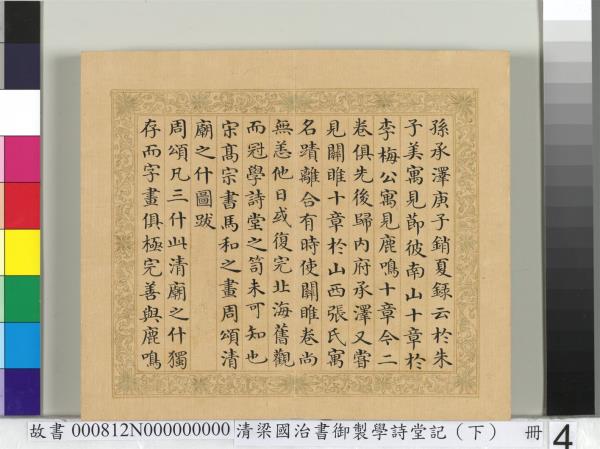 孫承澤庚子銷夏録云於朱
子美寓見莭彼南山十章於
李梅公寓見鹿鳴十章今二
卷俱先後歸内府承澤又嘗
見關雎十章於山西張氏寓
名蹟離合有時使關雎卷尚
無恙他日或復完北海舊觀
而冠學詩堂之笥未可知也
宋髙宗書馬和之畫周頌清
廟之什圖跋
周頌凡三什此清廟之什獨
存而字畫俱極完善與鹿鳴
故書 000812N000000000 清梁國治書御製學詩堂記（下） 冊 4